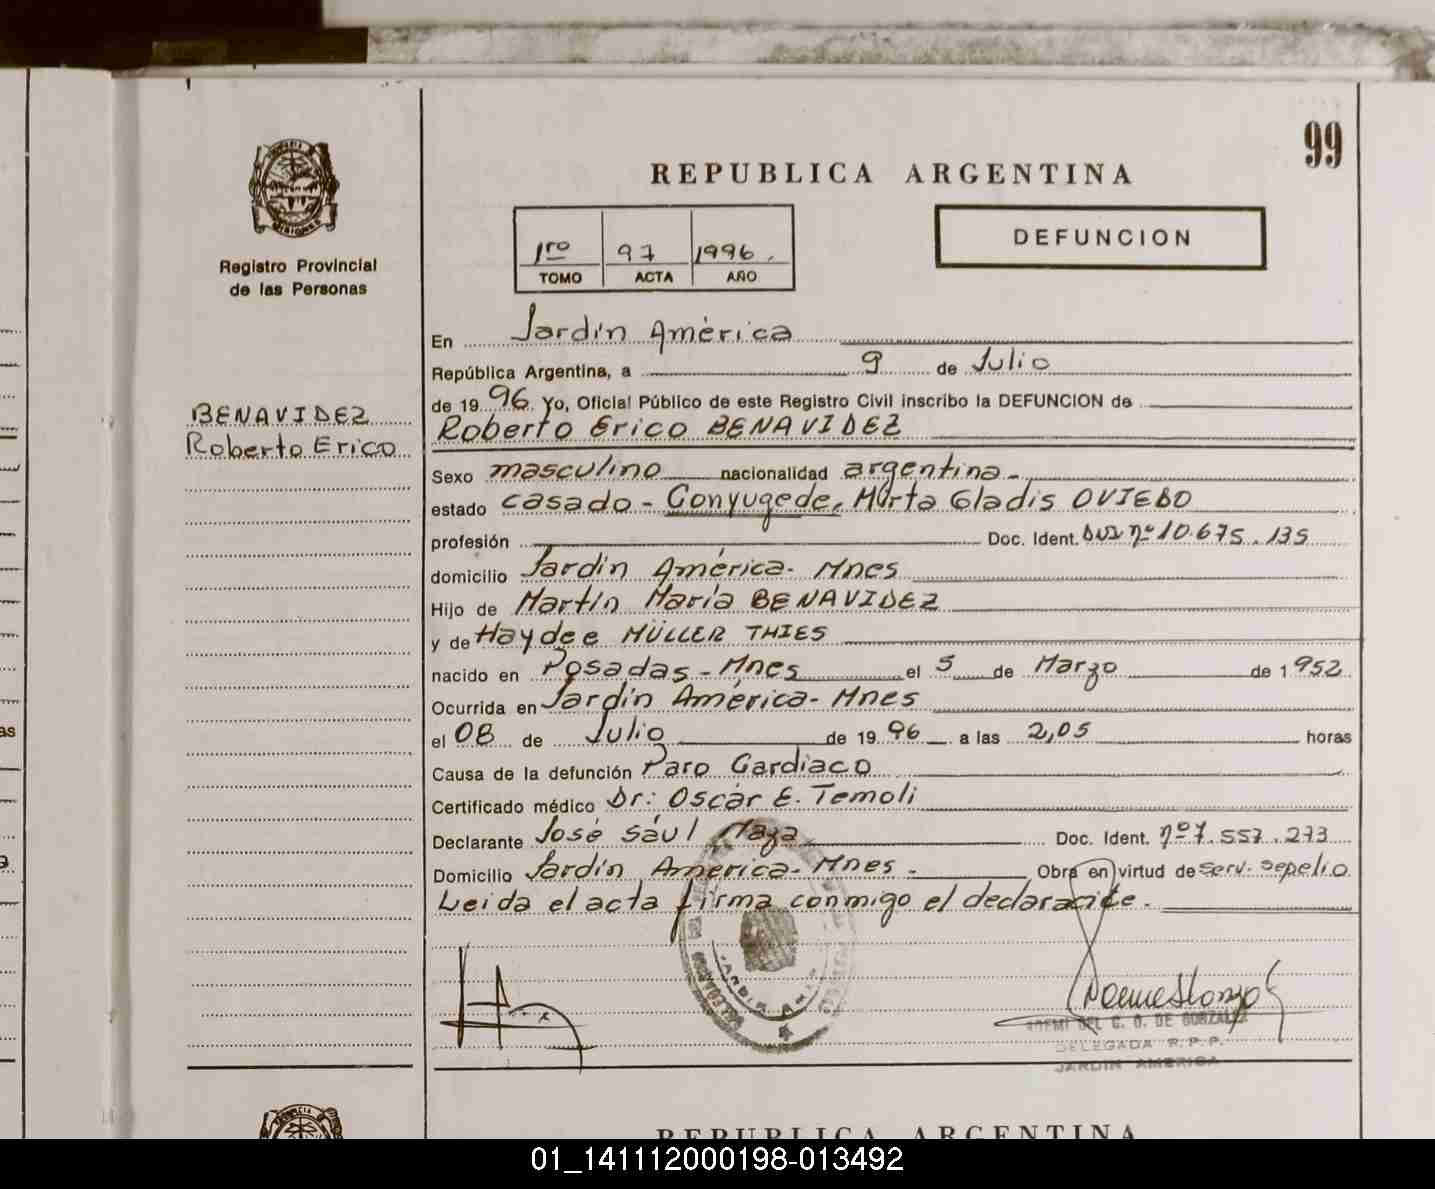 99
REPUBLICA ARGENTINA
1ro 97 1996.
TOMO ACTA AÑO
DEFUNCION
Registro Provincial
de las Personas
BENAVIDEZ
Roberto Erico
En Jardín América
República Argentina, a 9 de Julio
de 19 96 Yo, Oficial Público de este Registro Civil inscribo la DEFUNCION de
Roberto Erico BENAVIDEZ
Sexo masculino nacionalidad argentina -
estado casado - Conyuge de, Mirta Gladis OVIEDO
profesión Doc. Ident. DNI nº 10.675.135
domicilio Jardín América - Mnes
Hijo de Martín María BENAVIDEZ
y de Haydee MÜLLER THIES
nacido en Posadas - Mnes el 5 de Marzo de 1 952
Ocurrida en Jardín América - Mnes
el 08 de Julio de 19 96 a las 2,05 horas
Causa de la defunción Paro Cardiaco
Certificado médico Dr: Oscar E. Temoli
Declarante José Sául Maza Doc. Ident. nº 7.557.273
Domicilio Jardín America - Mnes - Obra en virtud de serv. sepelio
Leida el acta firma conmigo el declarante.
JARDIN AM
NOEMI DEL C. O. DE GONZALEZ
DELEGADA R.P.P.
JARDIN AMERICA
REPUBLICA ARGENTINA
01_141112000198-013492